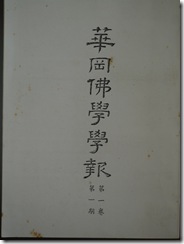 華岡佛學學報
第一卷
第一期